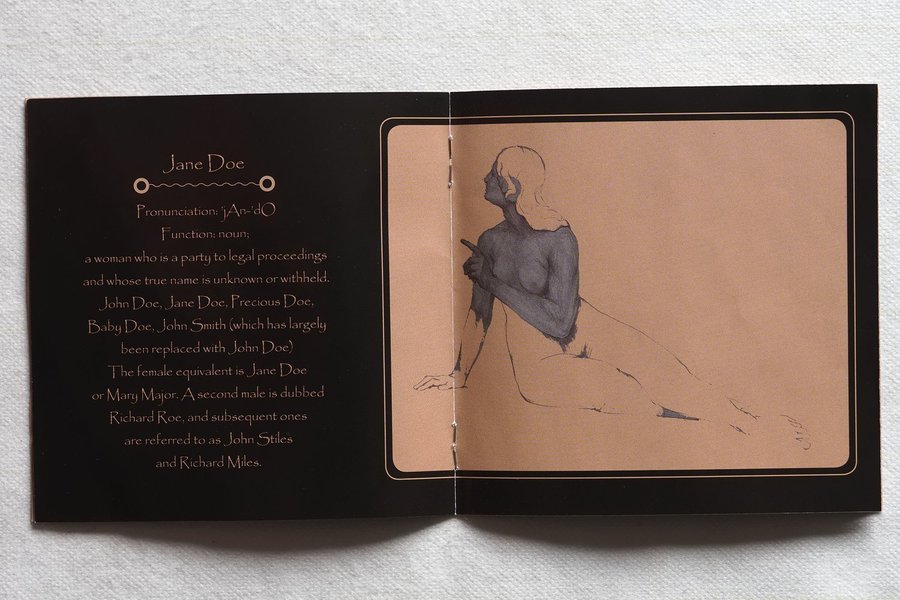 Jane Doe
Pronunciation: 'jAn-'dO
Function: noun;
a woman who is a party to legal proceedings
and whose true name is unknown or withheld.
John Doe, Jane Doe, Precious Doe,
Baby Doe, John Smith (which has largely
been replaced with John Doe)
The female equivalent is Jane Doe
or Mary Major. A second male is dubbed
Richard Roe, and subsequent ones
are referred to as John Stiles
and Richard Miles.